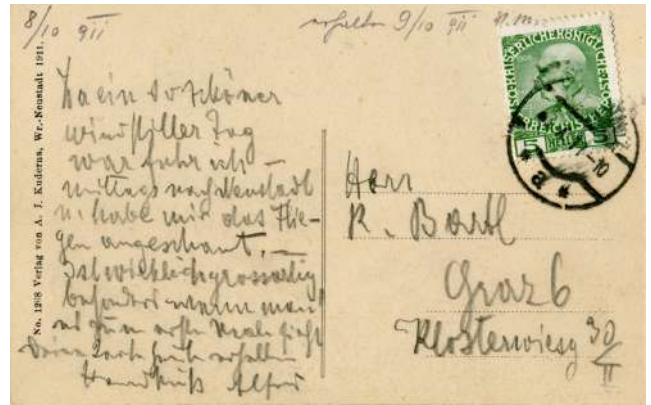 8/10 911
erhalten 9/10 911 N.M.
No. 1298 Verlag von A. J. Kuderna, Wr.-Neustadt 1911.
Da ein so schöner
windstiller Tag
war fuhr ich —
mittags nach Neustadt
u. habe mir das Flie-
gen angeschaut. —
Ist wirklich grossartig
besonders wenn man
es zum ersten Male sieht
Deine Karte heute erhalten
Handkuß Alfred
KAISERLICHE KÖNIGLICHE
ÖSTERREICHISCHE
5 HELLER 5
a
Herr
R. Bartl
Graz 6
Klosterwiesg 30
II